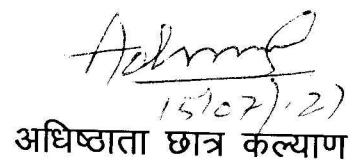 15/07/21
अधिष्ठाता छात्र कल्याण